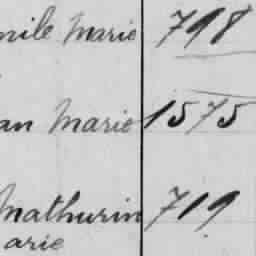 mile Marie 798
an Marie 1575
Mathurin 719
arie